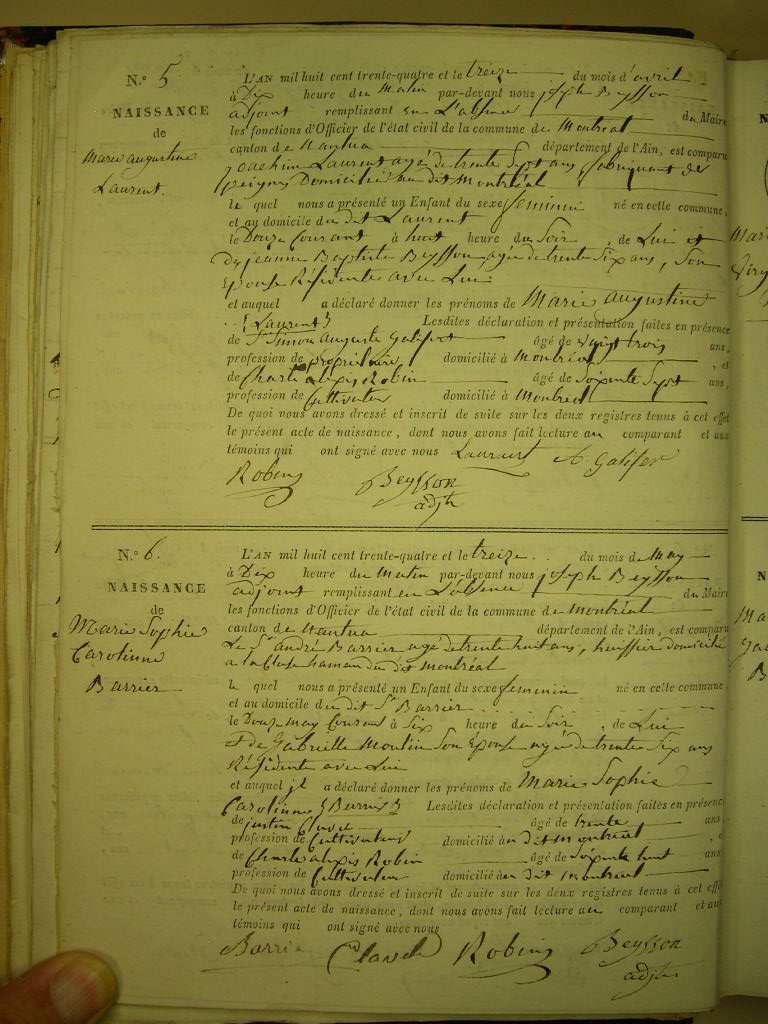 N.° 5
NAISSANCE
de
Marie augustine
Laurent.
L'AN mil huit cent trente-quatre et le treize du mois d'avril
à Dix heure du Matin par-devant nous joseph Beysson
adjoint remplissant en L'absence du Maire
les fonctions d'Officier de l'état civil de la commune de Montréal
canton de Nantua département de l'Ain, est comparu
joachim Laurent agé de trente Sept ans, fabriquant de
peignes Domicilié au dit Montréal
le quel nous a présenté un Enfant du sexe feminin né en cette commune,
et au domicile du dit Laurent
le Douze Courant à huit heure du Soir, de Lui et
De jeanne Baptiste Beysson agée de trente Six ans, Son
Epouse Résidente avec Lui
et auquel a déclaré donner les prénoms de Marie augustine
{Laurent} Lesdites déclaration et présentation faites en présence
de Sr Simon auguste Galifet âgé de vingt trois ans,
profession de propriétaire domicilié à Montréal, et
de Charle alexis Robin âgé de Soixente Sept ans,
profession de Cultivateur domicilié à Montréal
De quoi nous avons dressé et inscrit de suite sur les deux registres tenus à cet effet
le présent acte de naissance, dont nous avons fait lecture au comparant et aux
témoins qui ont signé avec nous Laurent A Galifet
Robin Beysson
adjt
N.° 6.
NAISSANCE
de
Marie Sophie
Carolinne
Barrier
L'AN mil huit cent trente-quatre et le treize du mois de May
à Dix heure du Matin par-devant nous joseph Beysson
adjoint remplissant en L'absence du Maire
les fonctions d'Officier de l'état civil de la commune de Montréal
canton de Nantua département de l'Ain, est comparu
Le Sr andré Barrier agé de trente huit ans, huissier domicilié
a la Cluse hameau du dit Montréal
le quel nous a présenté un Enfant du sexe feminin né en cette commune
et au domicile du dit Sr Barrier
le Douze May Courant à Six heure du Soir, de Lui
et de Gabrielle Moulin Son Epouse agée de trente Six ans
Résidente avec Lui
et auquel il a déclaré donner les prénoms de Marie Sophie
Carolinne Lesdites déclaration et présentation faites en présence
de justin âgé de trente ans
profession de Cultivateur domicilié à au dit Montréal
de Charle alexis Robin âgé de Soixente huit ans
profession de Cultivateur domicilié à au dit Montréal
De quoi nous avons dressé et inscrit de suite sur les deux registres tenus à cet effet
le présent acte de naissance, dont nous avons fait lecture au comparant et aux
témoins qui ont signé avec nous
Barrier Clavel Robin Beysson
adjt